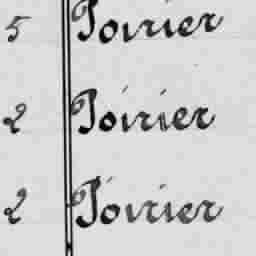 5 Poirier
2 Poirier
2 Poirier